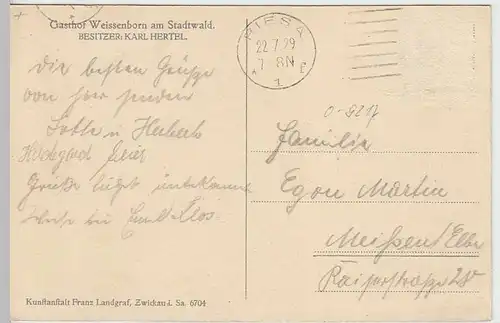 Gasthof Weissenborn am Stadtwald.
BESITZER: KARL HERTEL.
RIESA
22.7.29
7-8N
* 1 E
Die besten Grüsse
von hier senden
Lotte u Herbert
Hildegard
Grüsse
Woche bei Emil
0-8217
Familie
Egon Martin
Meißen/Elbe
Kaiserstraße
Kunstanstalt Franz Landgraf, Zwickau i. Sa. 6704